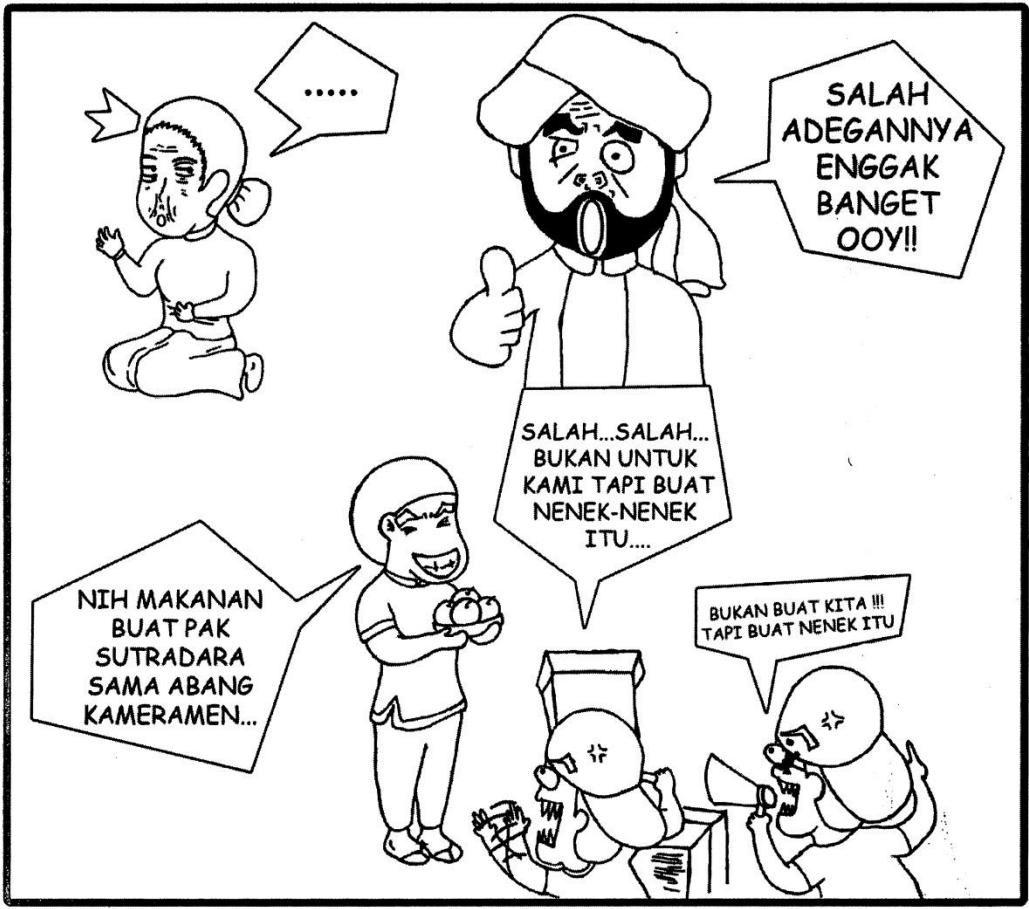 .....
SALAH
ADEGANNYA
ENGGAK
BANGET
OOY!!
SALAH...SALAH...
BUKAN UNTUK
KAMI TAPI BUAT
NENEK-NENEK
ITU....
NIH MAKANAN
BUAT PAK
SUTRADARA
SAMA ABANG
KAMERAMEN...
BUKAN BUAT KITA !!!
TAPI BUAT NENEK ITU